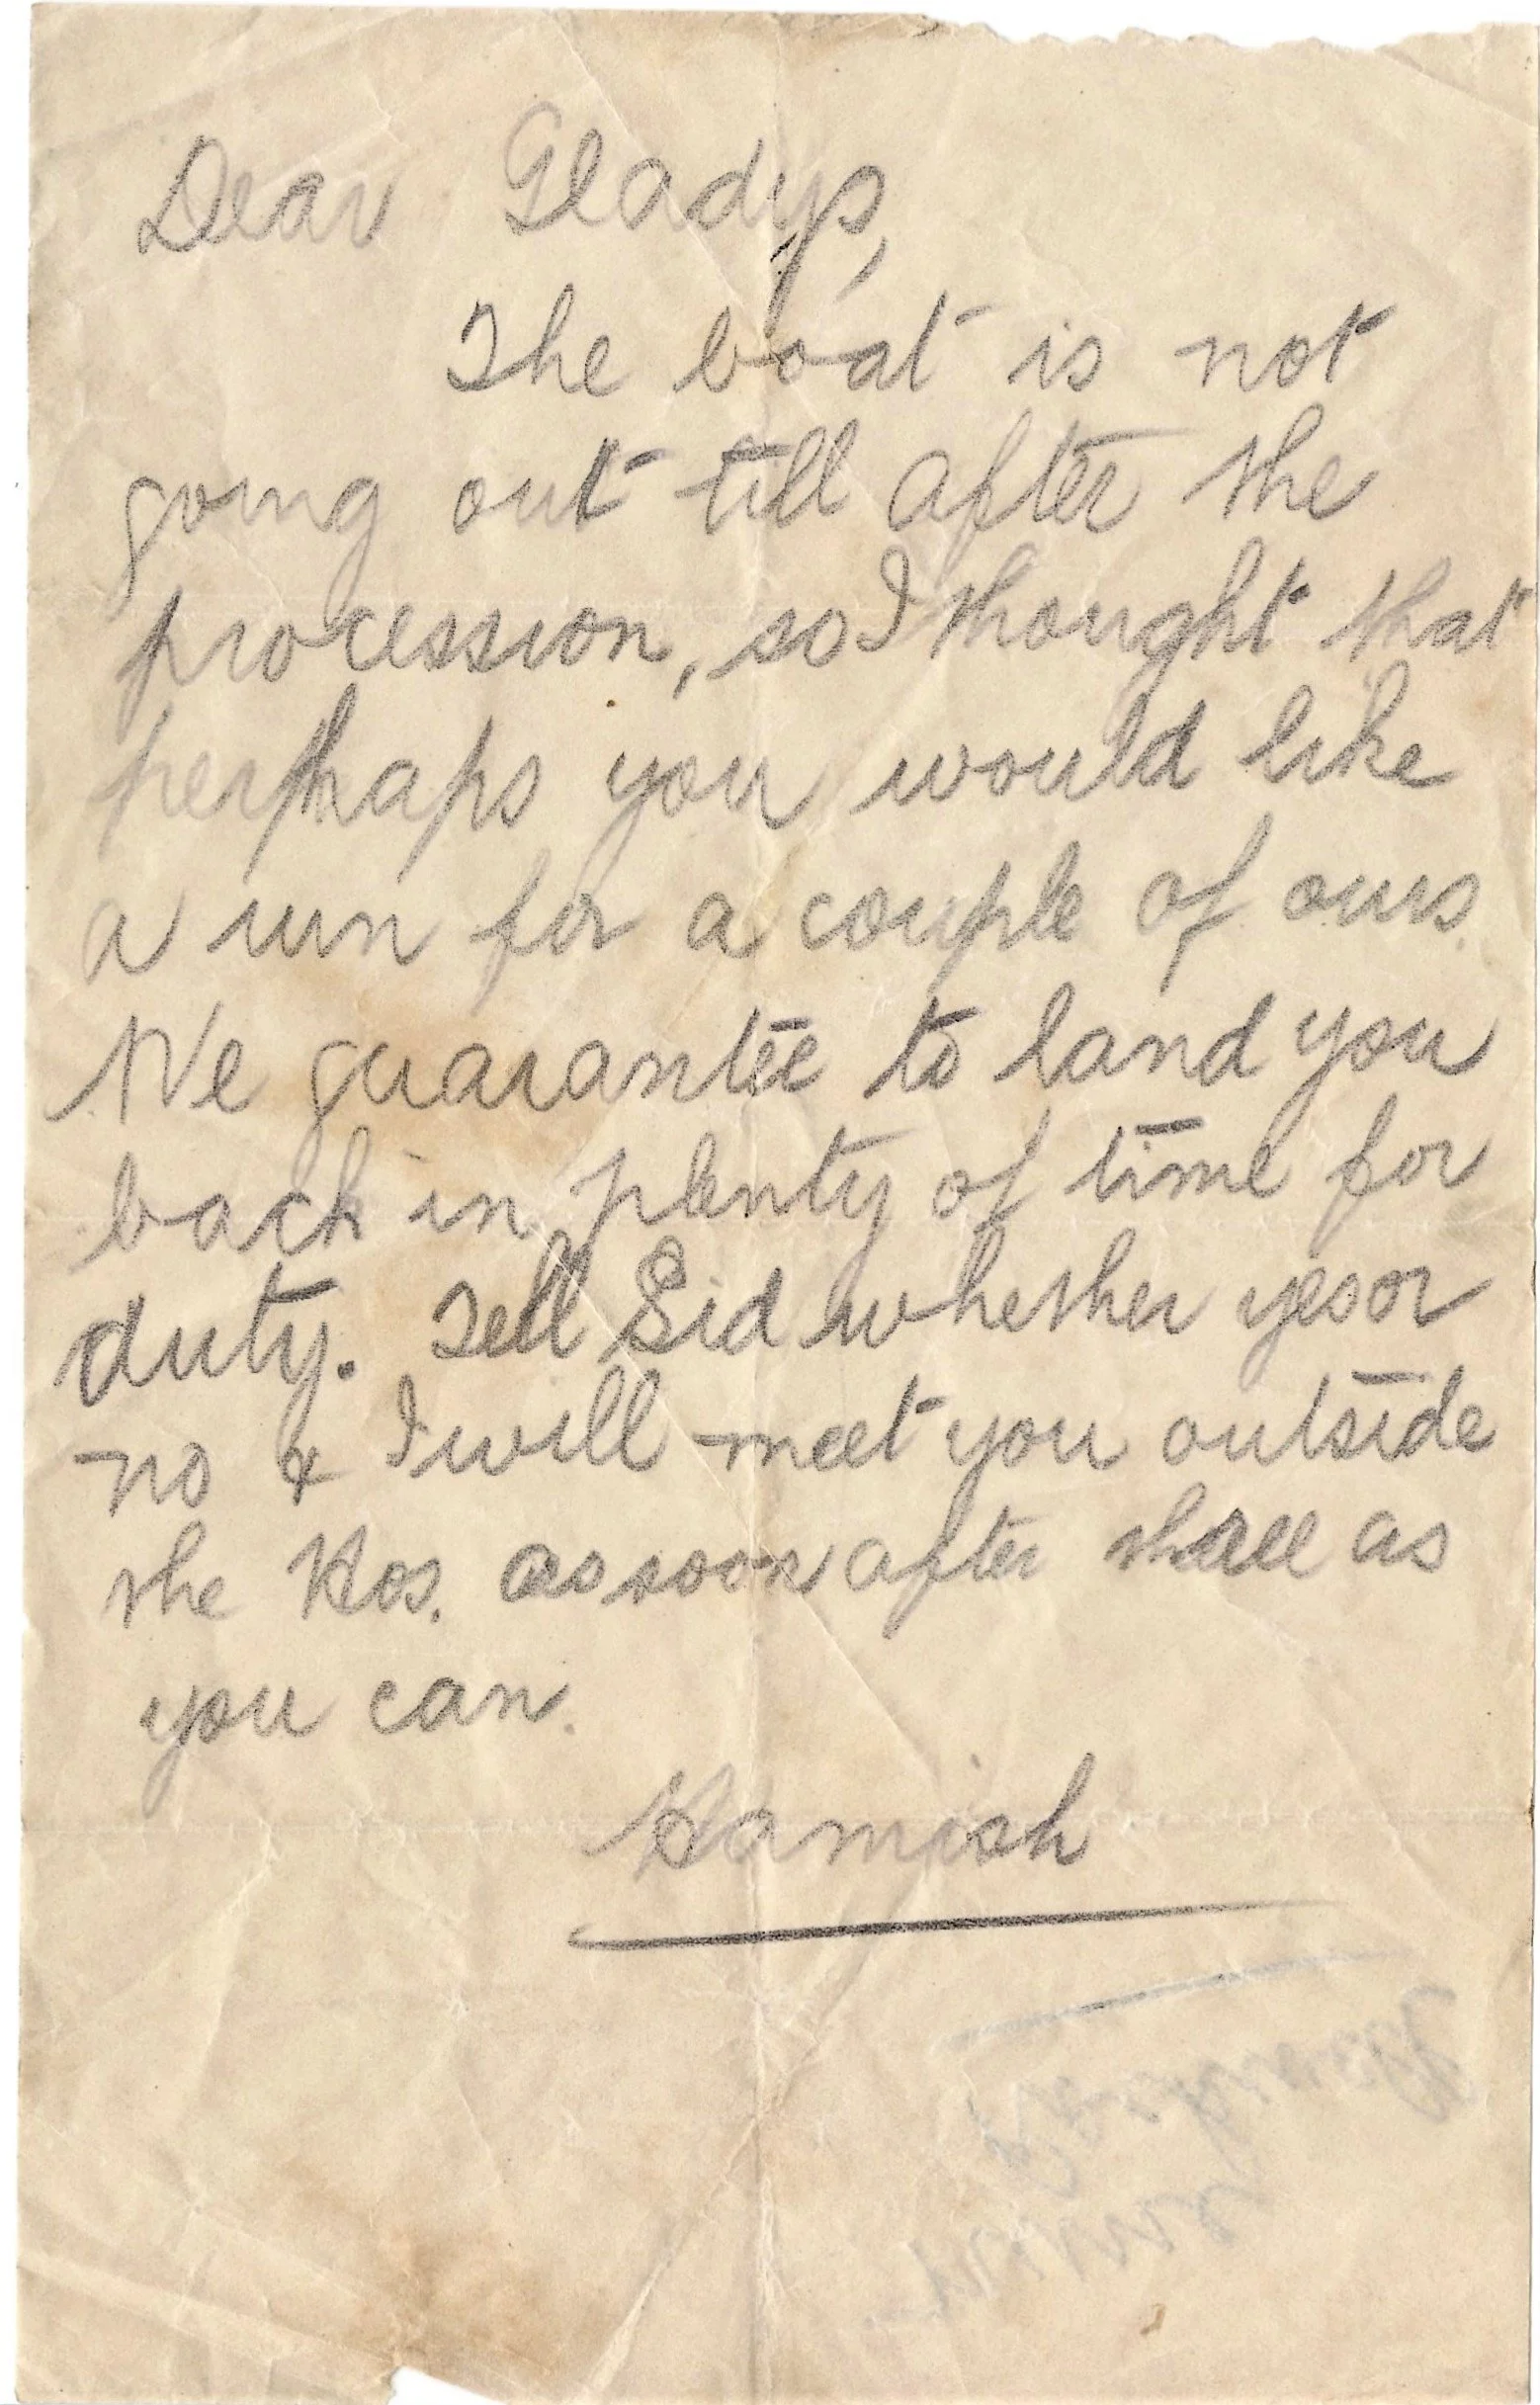 Dear Gladys,
The boat is not
going out till after the
procession, so I thought that
perhaps you would like
a run for a couple of ours.
We guarantee to land you
back in plenty of time for
duty. Tell Sid whether yes or
no & I will meet you outside
the Hos. as soon after three as
you can.
Hamish